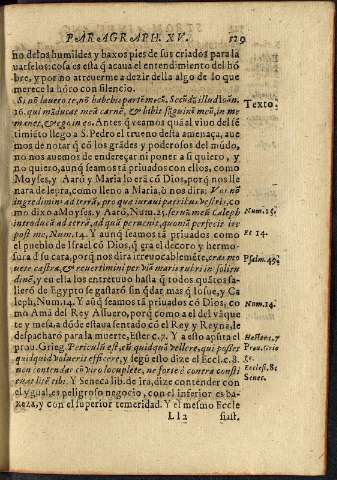 PARAGRAPH. XV. 129
no delos humildes y baxos pies de sus criados para la
uarselos: cosa es esta q̃ acaua el entendimiento del hõ
bre, y por no atreuerme a dezir della algo de lo que
merece la hõro con silencio.
Si nõ lauero te, nõ habebis partẽ mecũ. Secũdũ illud Ioãn.
Texto.
6. qui mãducat meã carnẽ, & bibit sãguinẽ meũ, in me
manet, & ego in eo. Antes q̃ veamos quã al viuo del sẽ
timiẽto llego a S. Pedro el trueno desta amenaça, aue
mos de notar q̃ cõ los grãdes y poderosos del mũdo,
no nos auemos de endereçar ni poner a si quiero, y
no quiero, aunq̃ seamos tã priuados con ellos, como
Moyses, y Aarõ y Maria lo erã cõ Dios, porq̃ nos lle
nara de lepra, como lleno a Maria, ò nos dira: Vos nõ
ingredimini ad terrã, pro qua iuraui patribus vestris, co
mo dixo a Moyses, y Aarõ, Num. 25. seruũ meũ Caleph
Num. 25.
introducã ad terrã, ad quã peruenit, quoniã perfectè ire
post me, Num. 14. Y aunq̃ seamos tã priuados como
Et 14.
el pueblo de Israel cõ Dios, q̃ era el decoro y hermo-
sura d̃ su cara, porq̃ nos dira irreuocablemẽte, eras mo
Psalm. 49.
uete castra, & reuertimini per viã maris rubri in solitu
dinẽ, y en ella los entretuuo hasta q̃ todos quãtos sa-
lierõ de Egypto se gastarõ sin q̃dar mas q̃ Iosue, y Ca
leph, Num. 14. Y aũq̃ seamos tã priuados cõ Dios, co
Num. 14.
mo Amã del Rey Assuero, porq̃ como a el del vãque
te y mesa, a dõde estaua sentado cõ el Rey y Reyna, le
despacharõ para la muerte, Ester c. 7. Y a esto aspira el
Hester c. 7
prou. Grieg. Periculũ est, eũ quidquã vellere, qui posset
Prou. Grie
quidquid voluerit efficere, y segũ esto dize el Eccl. c. 8.
go.
non contendar cũ viro locuplete, ne forte è contra consti
Eccles. 8.
tuat litẽ tibi. Y Seneca lib. de ira, dize contender con
Senec.
el ygual, es peligroso negocio, con el inferior es ba-
xeza, y con el superior temeridad. Y el mesmo Eccle
Ll 2 siast.